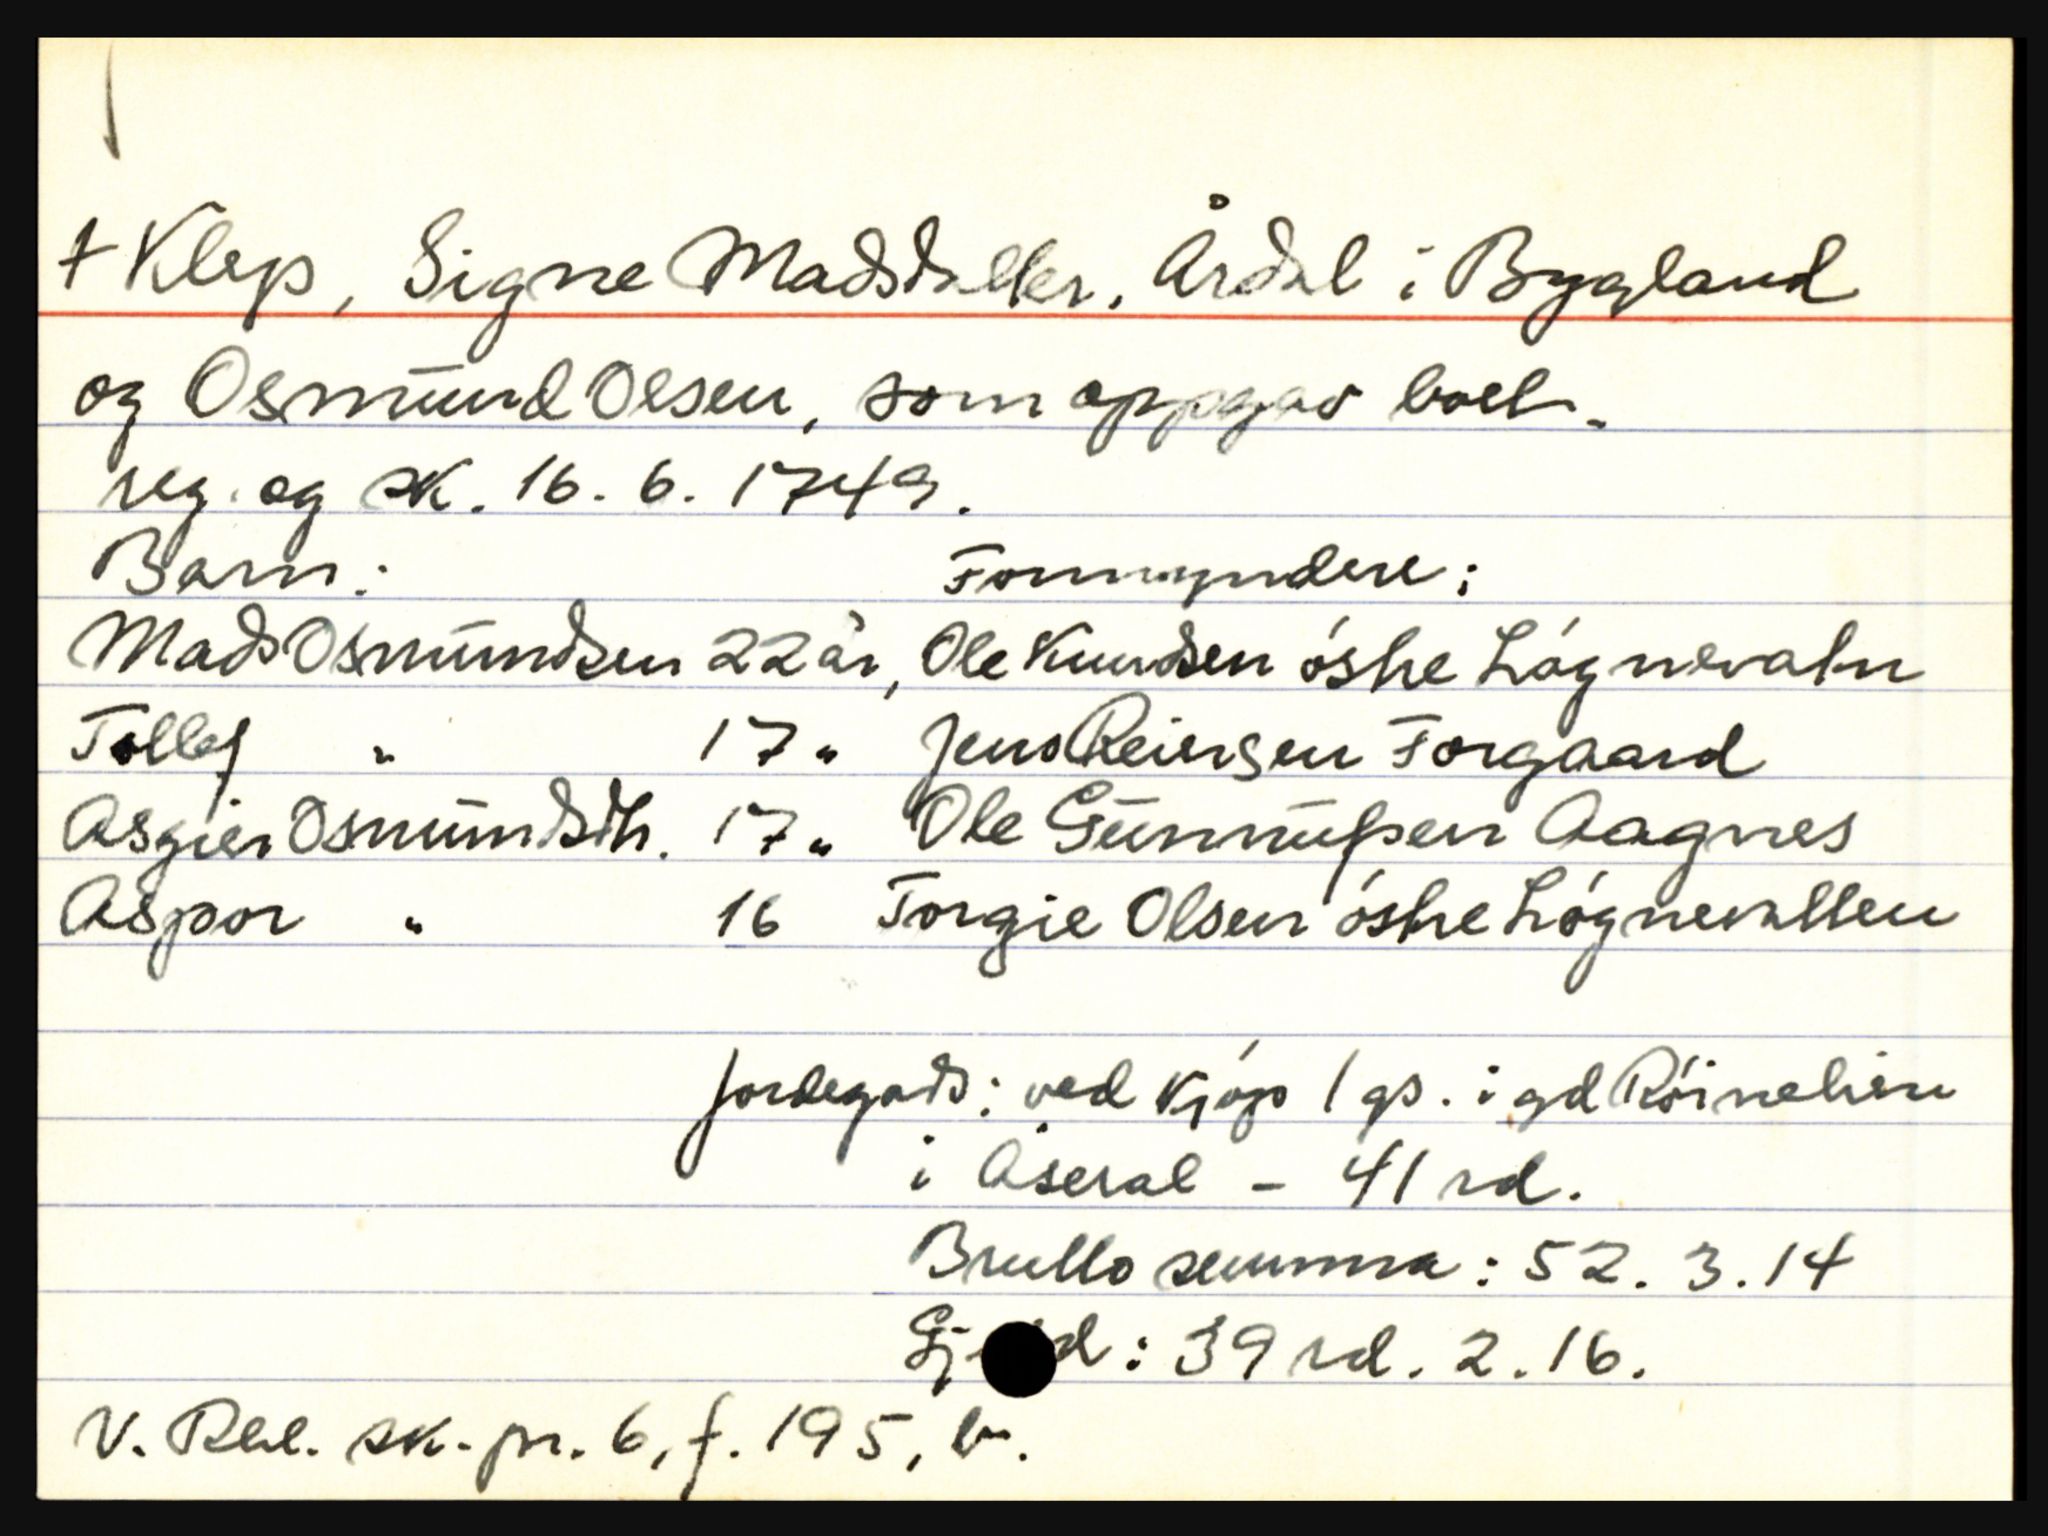 + Klep, Signe Madsdatter. Årdal i Bygland
og Osmund Olsen, som oppgav boet.
reg. og sk. 16. 6. 1749.
Barn: Formyndere:
Mads Osmundsen 22 år, Ole Knudsen óstre Lógnevatn
Tollef " 17 " Jens Reiersen Forgaard
Asgier Osmundsdtr. 17 " Ole Gunnufsen Aagnes
Aspor " 16 Torgie Olsen óstre Lógnevatten
Jordegods: ved kjóp 1 gs. i gd Róinelien
i Åseral - 41 rd.
Brutto summa: 52. 3. 14
Gj d: 39 rd. 2. 16.
V. Rbl. sk. pr. 6, f. 195, b.